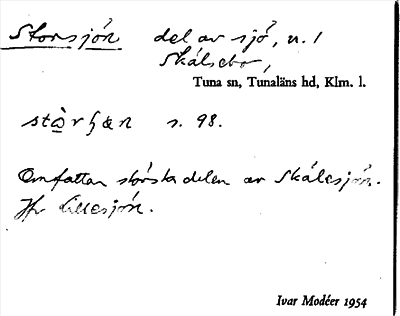 Storsjön del av sjö, n. 1
Skälsebo,
Tuna sn, Tunaläns hd, Klm. l.
s. 98.
Omfattar största delen av Skälesjön.
Jfr Lillesjön.
Ivar Modéer 1954